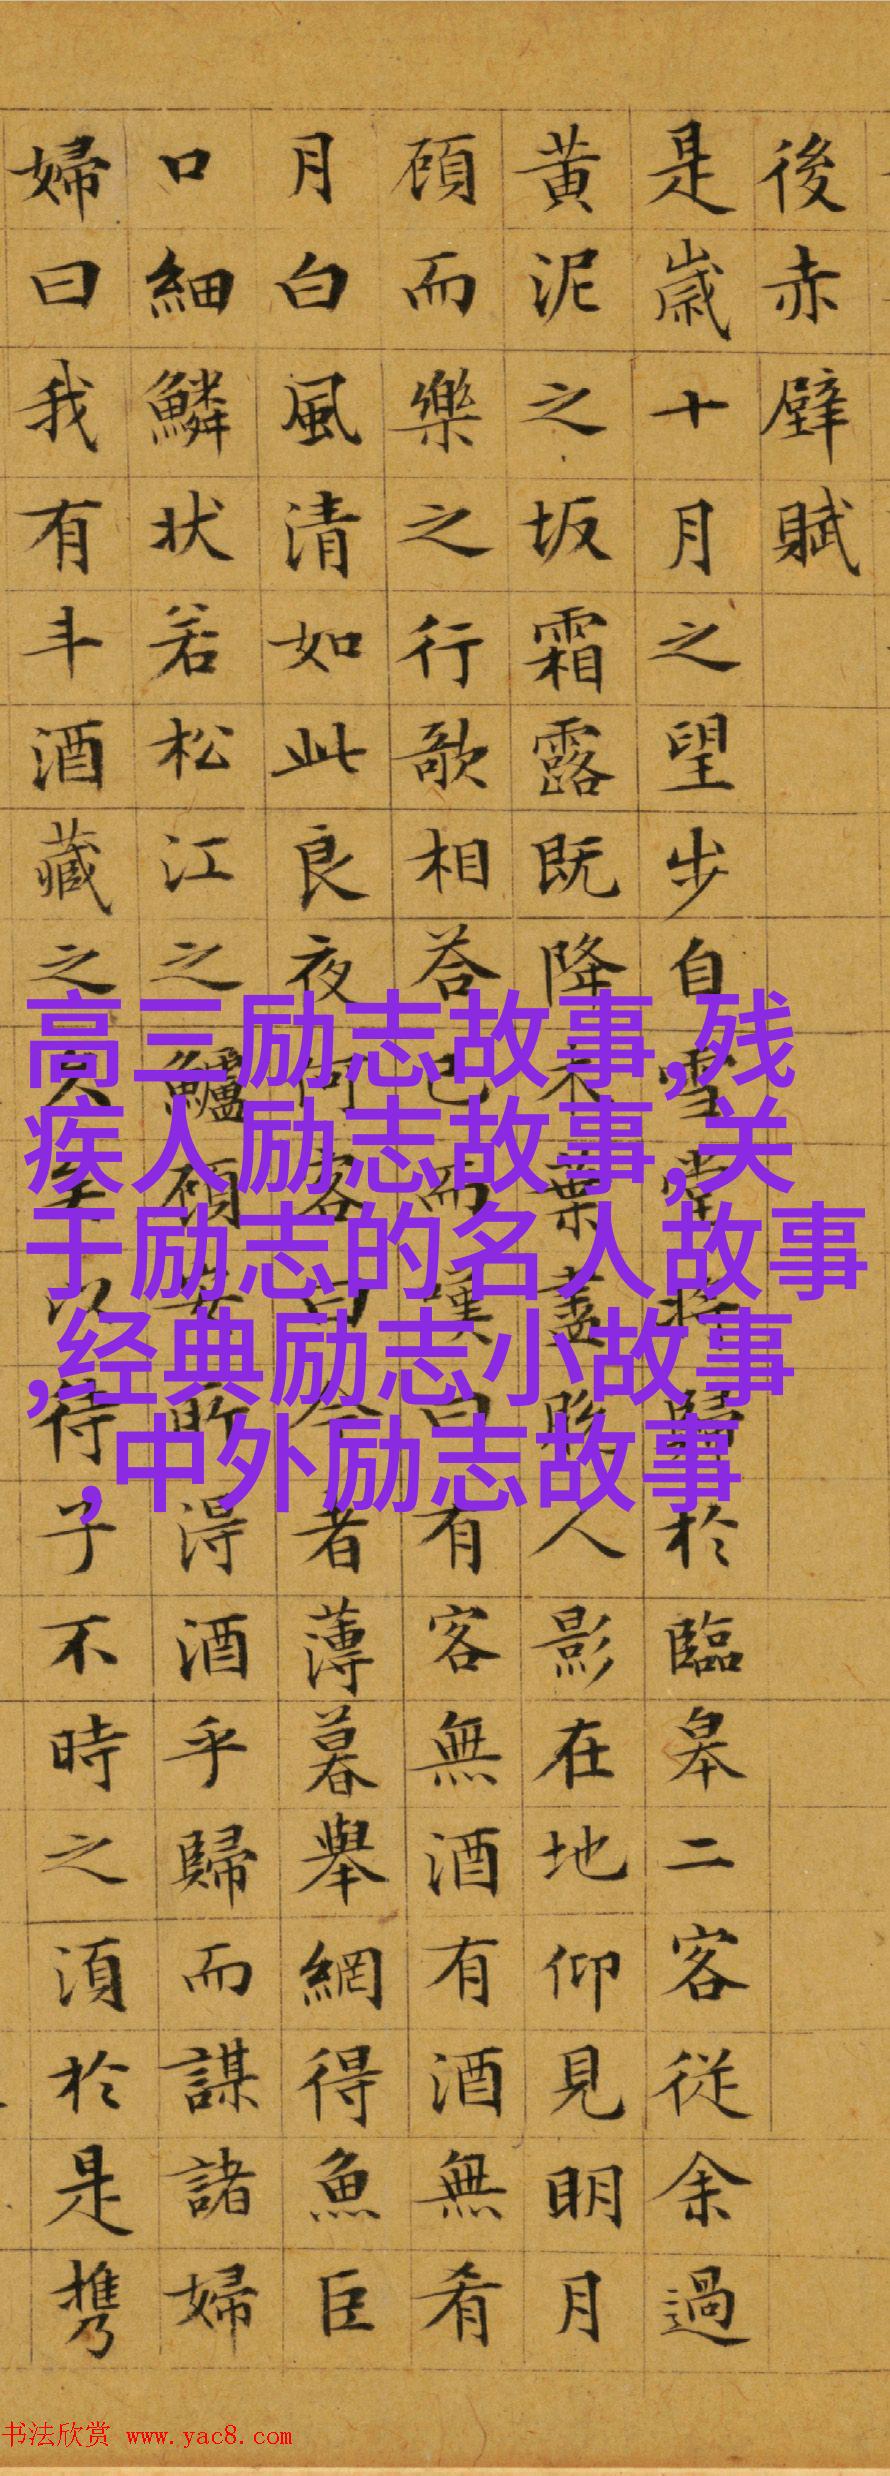 後赤壁賦
是歲十月之望步自雪堂將歸於臨皋二客從余過
黄泥之坂霜露既降木葉盡脫人影在地仰見明月
頋而樂之行歌相荅已而嘆曰有客無酒有酒無肴
月白風清如此良夜何客曰今者薄暮舉網得魚巨
口細鱗状若松江之鱸頋安所得酒乎歸而謀諸婦
婦曰我有斗酒藏之久矣以待子不時之湏於是携
高三励志故事,残
疾人励志故事,关
于励志的名人故事
,经典励志小故事
,中外励志故事
书法欣赏 www.yac8.com